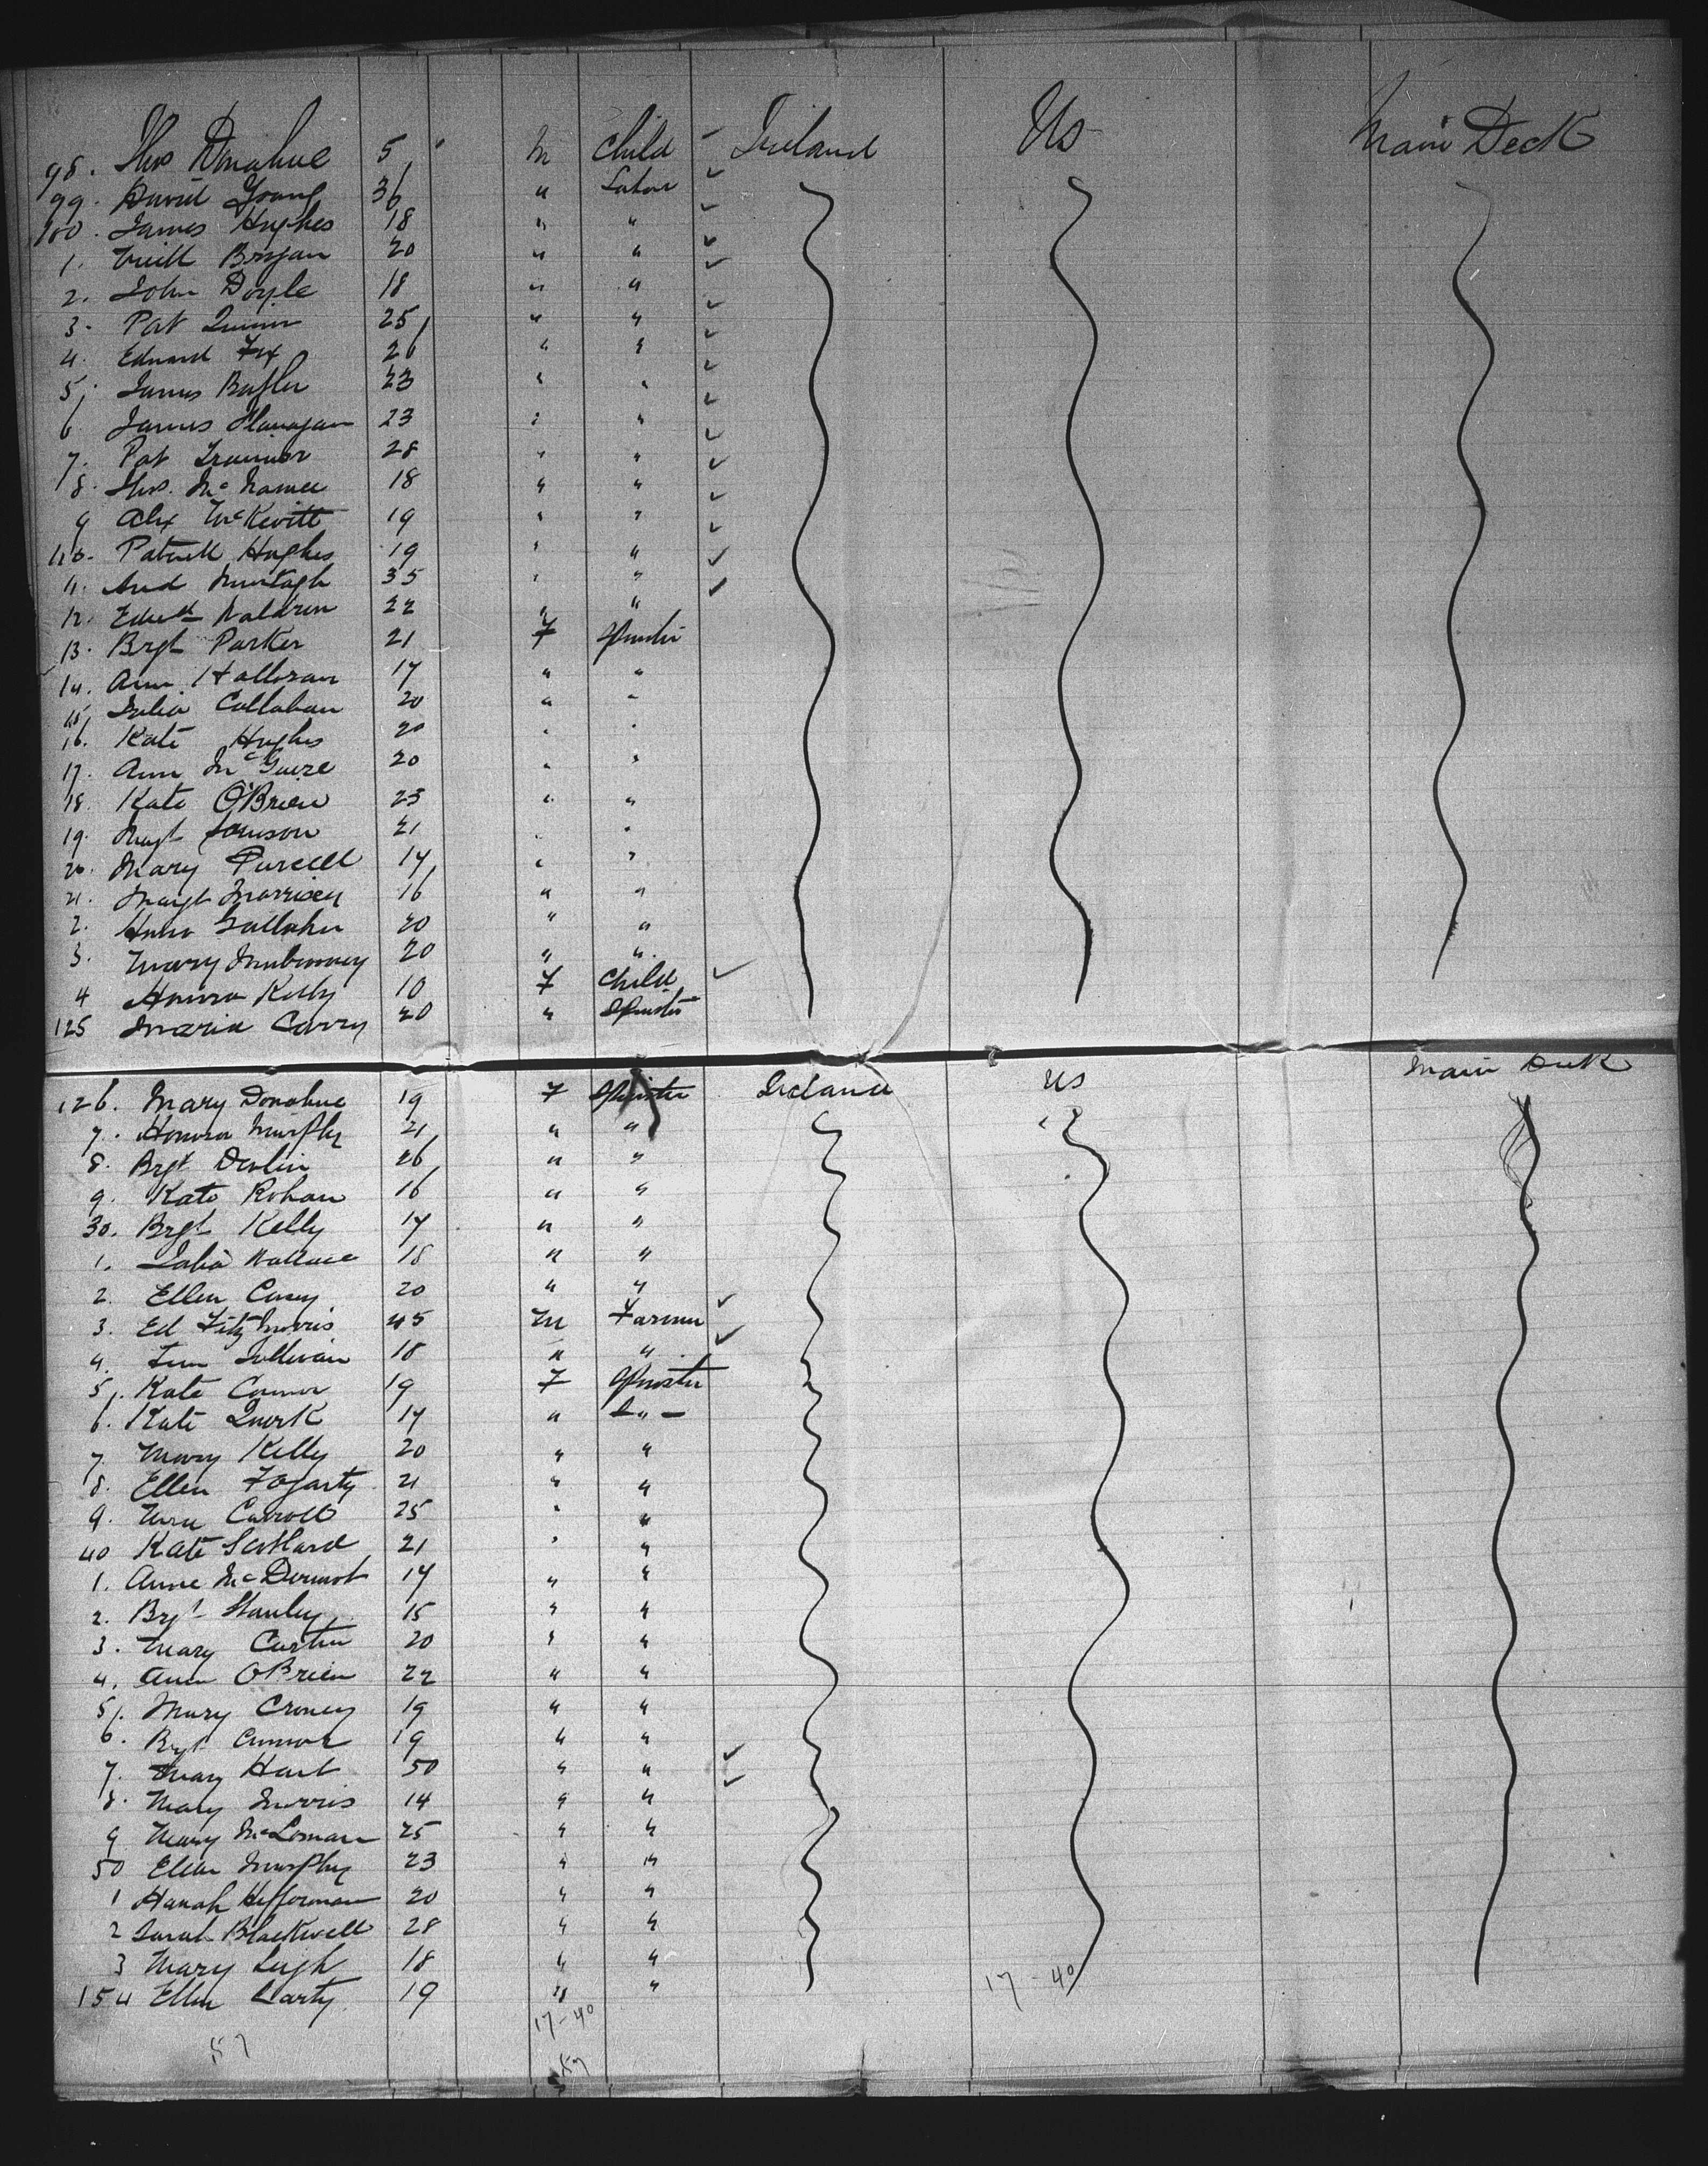 98. Thos Donahue 5 " M Child Ireland Us Main Deck
99. David Young 36 " Labor
100. James Hughes 18 " "
1. Will Bryan 20 " "
2. John Doyle 18 " "
3. Pat Quinn 25 " "
4. Edward Fox 26 " "
5. James Butler 23 " "
6 James Flanagan 23 " "
7. Pat Trainor 28 " "
8. Thos. McNamee 18 " "
9 Alex McKevitt 19 " "
110. Patrick Hughes 19 " "
11. And Murtagh 35 " "
12. Edwd Waldron 22 " "
13. Brgt Parker 21 F Spinster
14. Ann Halloran 17 " "
15. Julia Callahan 20 " "
16. Kate Hughes 20 " "
17. Ann McGuire 20 " "
18. Kate O'Brien 23 " "
19. Magt 21 " "
20. Mary Purcell 17 " "
21. Margt Morrisey 16 " "
2. Gallaher 20 " "
3. Mary 20 " "
4 Honora Kelly 10 F Child
125 Maria Corry 20 " Spinster
126. Mary Donahue 19 F Spinster Ireland US Main Deck
7. Honora Murphy 21 " "
8. Brgt Devlin 26 " "
9. Kate Rohan 16 " "
30. Brgt Kelly 17 " "
1. Wallace 18 " "
2. Ellen Casey 20 " "
3. Ed FitzMorris 45 M Farmer
4. Sullivan 18 " "
5. Kate Connor 19 F Spinster
6. Kate Quirk 17 " D " -
7. Mary Kelly 20 " "
8. Ellen Fogarty 21 " "
9. Carroll 25 " "
40 Kate Scotland 21 " "
1. Anne McDermot 17 " "
2. Brgt Stanley 15 " "
3. Mary Curtin 20 " "
4. Ann O'Brien 22 " "
5. Mary Croney 19 " "
6. Brgt Connor 19 " "
7. Mary Hart 50 " "
8. Mary Morris 14 " "
9 Mary 25 " "
50 Ellen Murphy 23 " "
1 Hanah Hefforman 20 " "
2 Sarah Blackwell 28 " "
3 Mary Leigh 18 " "
154 Ellen Carty 19 " "
17-40
17-40
57
57